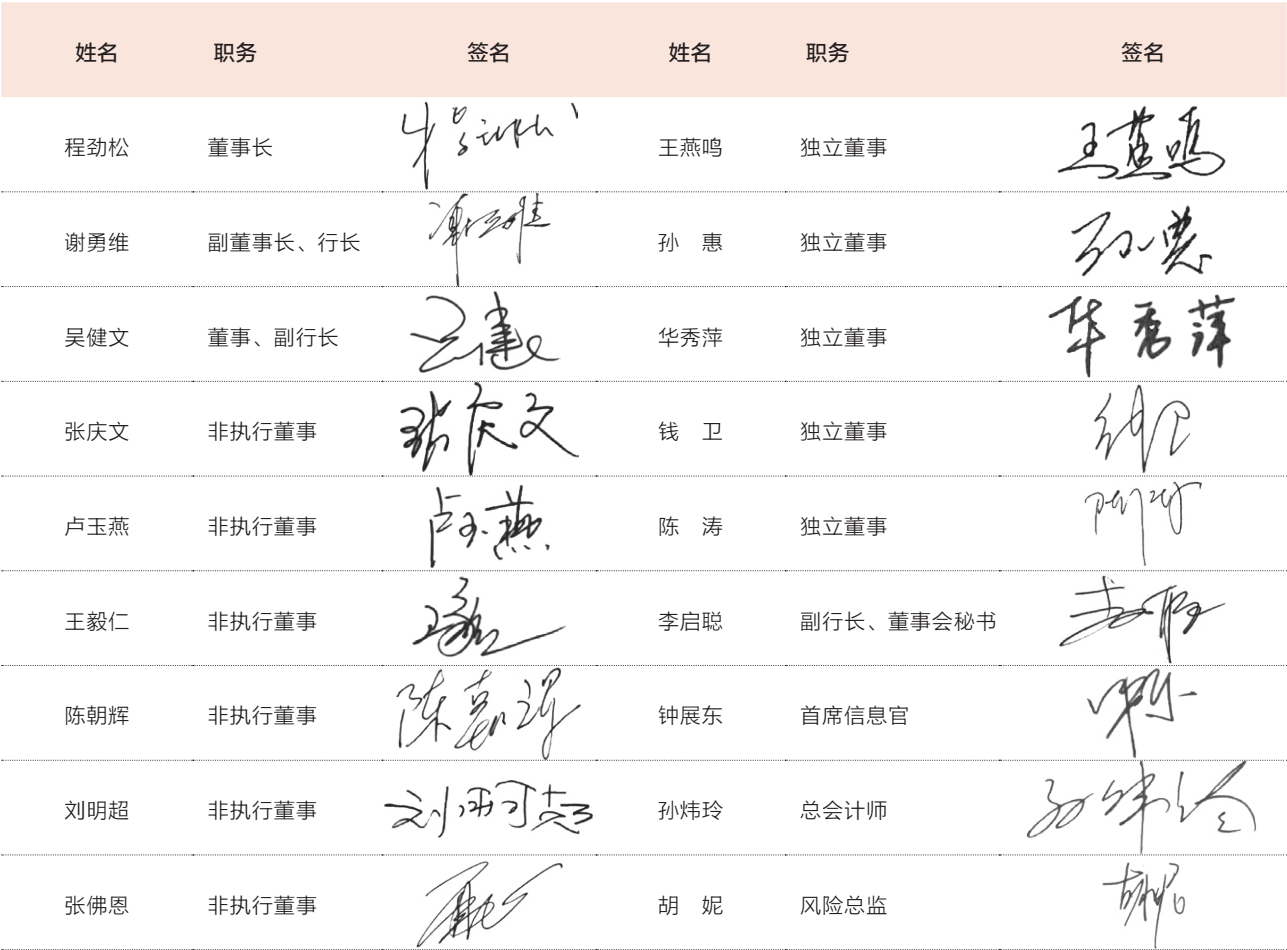 姓名 职务 签名 姓名 职务 签名
程劲松 董事长 王燕鸣 独立董事 王燕鸣
谢勇维 副董事长、行长 孙 惠 独立董事 孙惠
吴健文 董事、副行长 华秀萍 独立董事 华秀萍
张庆文 非执行董事 张庆文 钱 卫 独立董事
卢玉燕 非执行董事 卢玉燕 陈 涛 独立董事
王毅仁 非执行董事 李启聪 副行长、董事会秘书
陈朝辉 非执行董事 钟展东 首席信息官
刘明超 非执行董事 孙炜玲 总会计师
张佛恩 非执行董事 胡 妮 风险总监